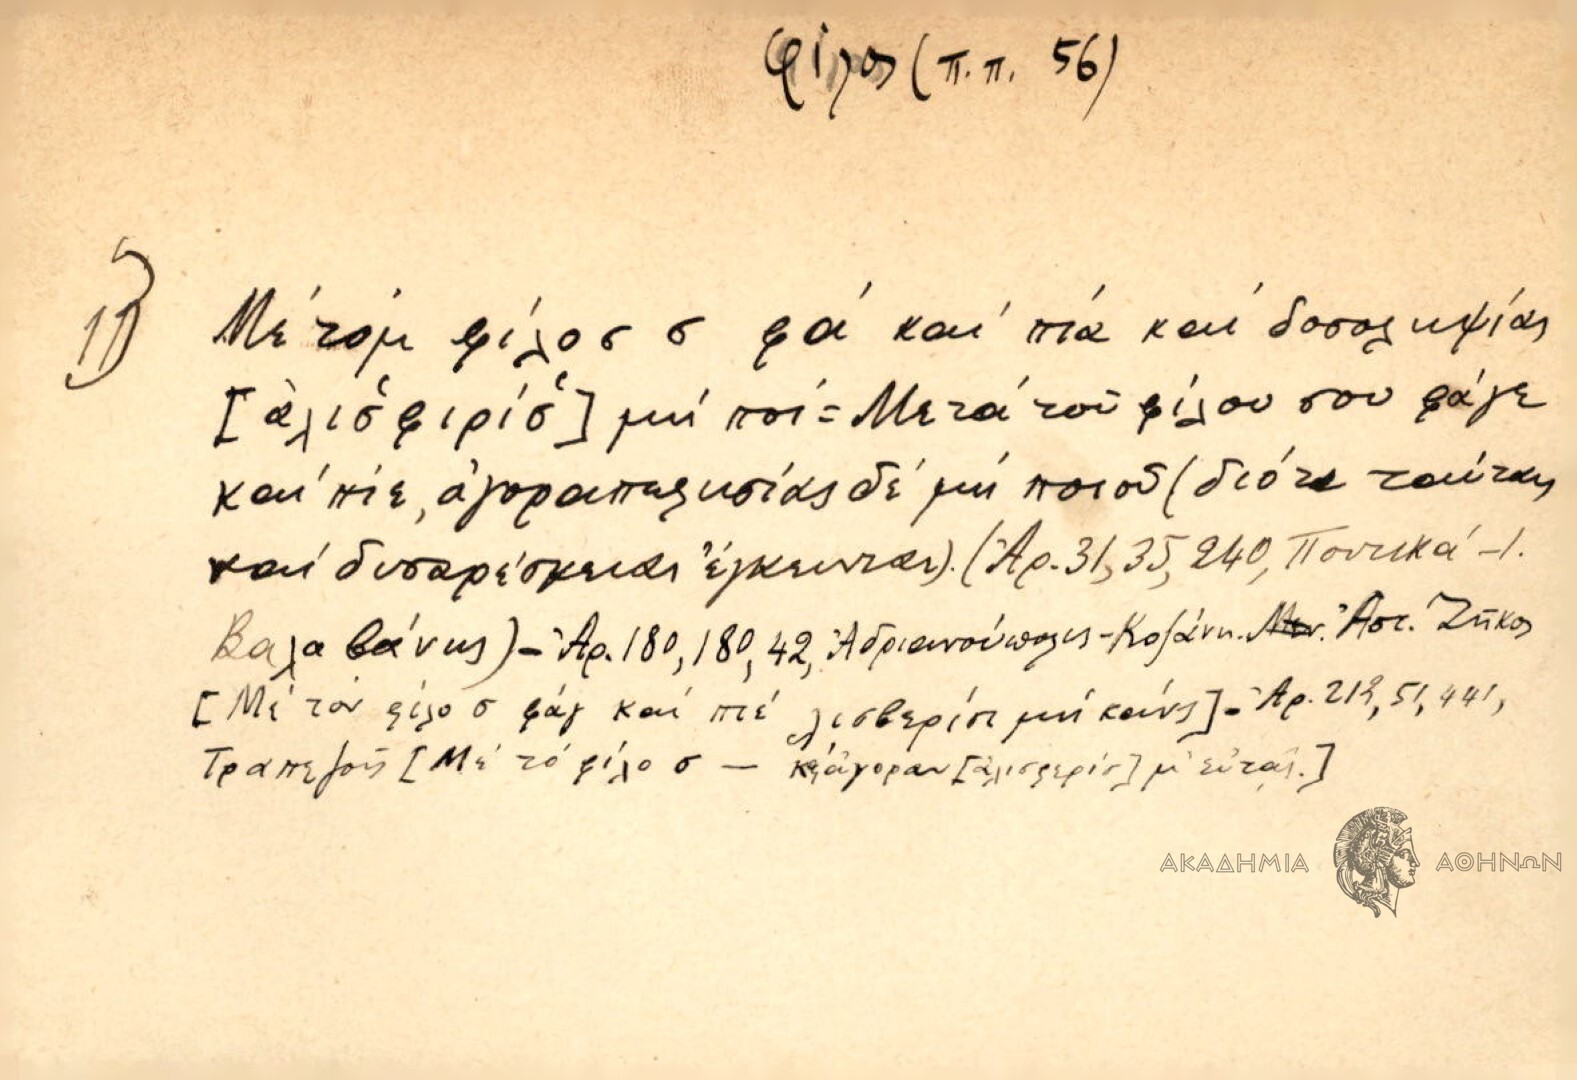 φίλος (π.π. 56)
11) Μέ τομ φίλος σ φά καί πιά καί δοσοληψίας
[ἀλισ̌φιρίσ̌] μή ποί = Μετά τοῦ φίλου σου φάγε
καί πίε, ἀγοραπωλησίας δέ μή ποιοῦ (διότι ταύταις
καί δυσαρέσκειαι ἔγκεινται). (Ἀρ. 31, 35, 240, Ποντικά - Ι.
Βαλαβάνης) - Ἀρ. 180, 180, 42, Ἀδριανούπολις - Κοζάνη. Ἀστ. Ζῆκος
[Μέ τόν φίλο σ φάγ καί πιέ λισβερίσι μή κάνς] - Ἀρ. 219, 51, 441,
Τραπεζοῦς [Μέ τό φίλο σ — ἀγοραν [ἀλισφερίσ] μ' εὐτᾶς.]
ΑΚΑΔΗΜΙΑ ΑΘΗΝΩΝ